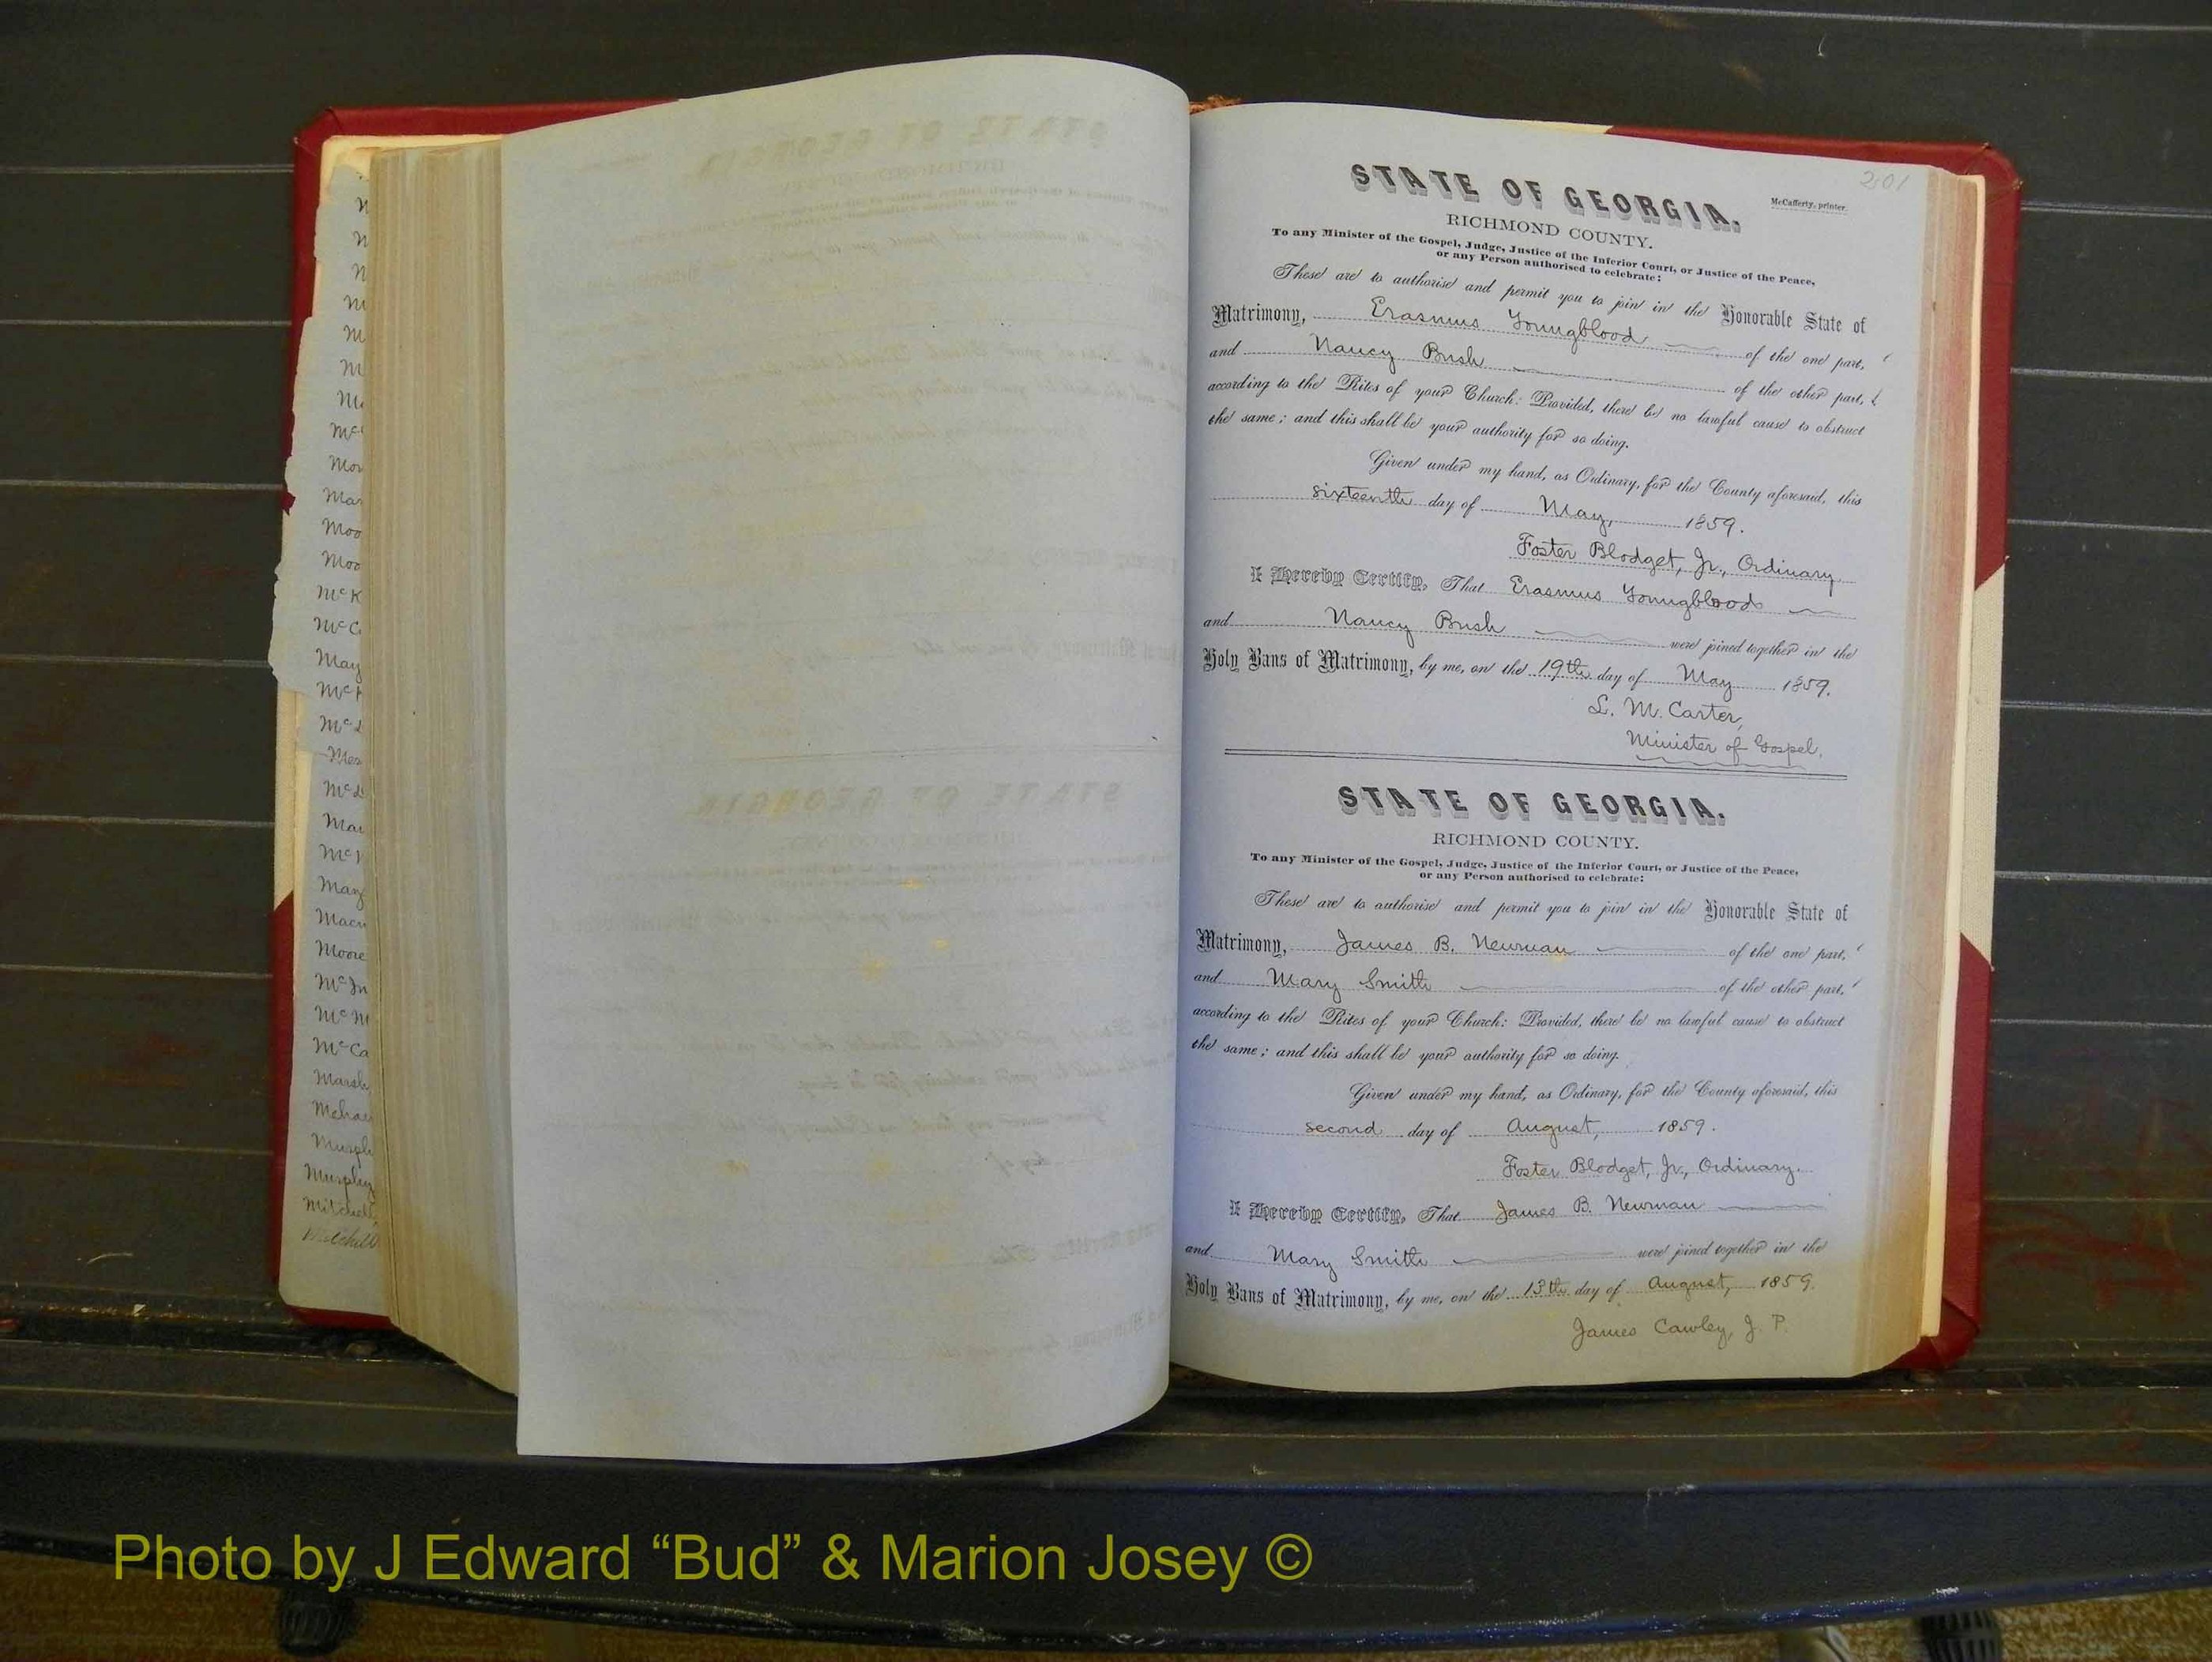 Mc K
Mc C
May
Moore
Mc In
Mc M
Mc Ca
Murphy
Mitchell
Mitchell
201
STATE OF GEORGIA.
McCafferty, printer.
RICHMOND COUNTY.
To any Minister of the Gospel, Judge, Justice of the Inferior Court, or Justice of the Peace,
or any Person authorised to celebrate:
These are to authorise and permit you to join in the Honorable State of
Matrimony, Erasmus Youngblood of the one part,
and Nancy Bush of the other part,
according to the Rites of your Church: Provided, there be no lawful cause to obstruct
the same; and this shall be your authority for so doing.
Given under my hand, as Ordinary, for the County aforesaid, this
sixteenth day of May, 1859.
Foster Blodget, Jr., Ordinary.
I Hereby Certify, That Erasmus Youngblood
and Nancy Bush were joined together in the
Holy Bans of Matrimony, by me, on the 19th day of May 1859.
L. M. Carter,
Minister of Gospel.
STATE OF GEORGIA.
RICHMOND COUNTY.
To any Minister of the Gospel, Judge, Justice of the Inferior Court, or Justice of the Peace,
or any Person authorised to celebrate:
These are to authorise and permit you to join in the Honorable State of
Matrimony, James B. Newman of the one part,
and Mary Smith of the other part,
according to the Rites of your Church: Provided, there be no lawful cause to obstruct
the same; and this shall be your authority for so doing.
Given under my hand, as Ordinary, for the County aforesaid, this
second day of August, 1859.
Foster Blodget, Jr., Ordinary.
I Hereby Certify, That James B. Newman
and Mary Smith were joined together in the
Holy Bans of Matrimony, by me, on the 13th day of August, 1859.
James Cawley, J. P.
Photo by J Edward “Bud” & Marion Josey ©